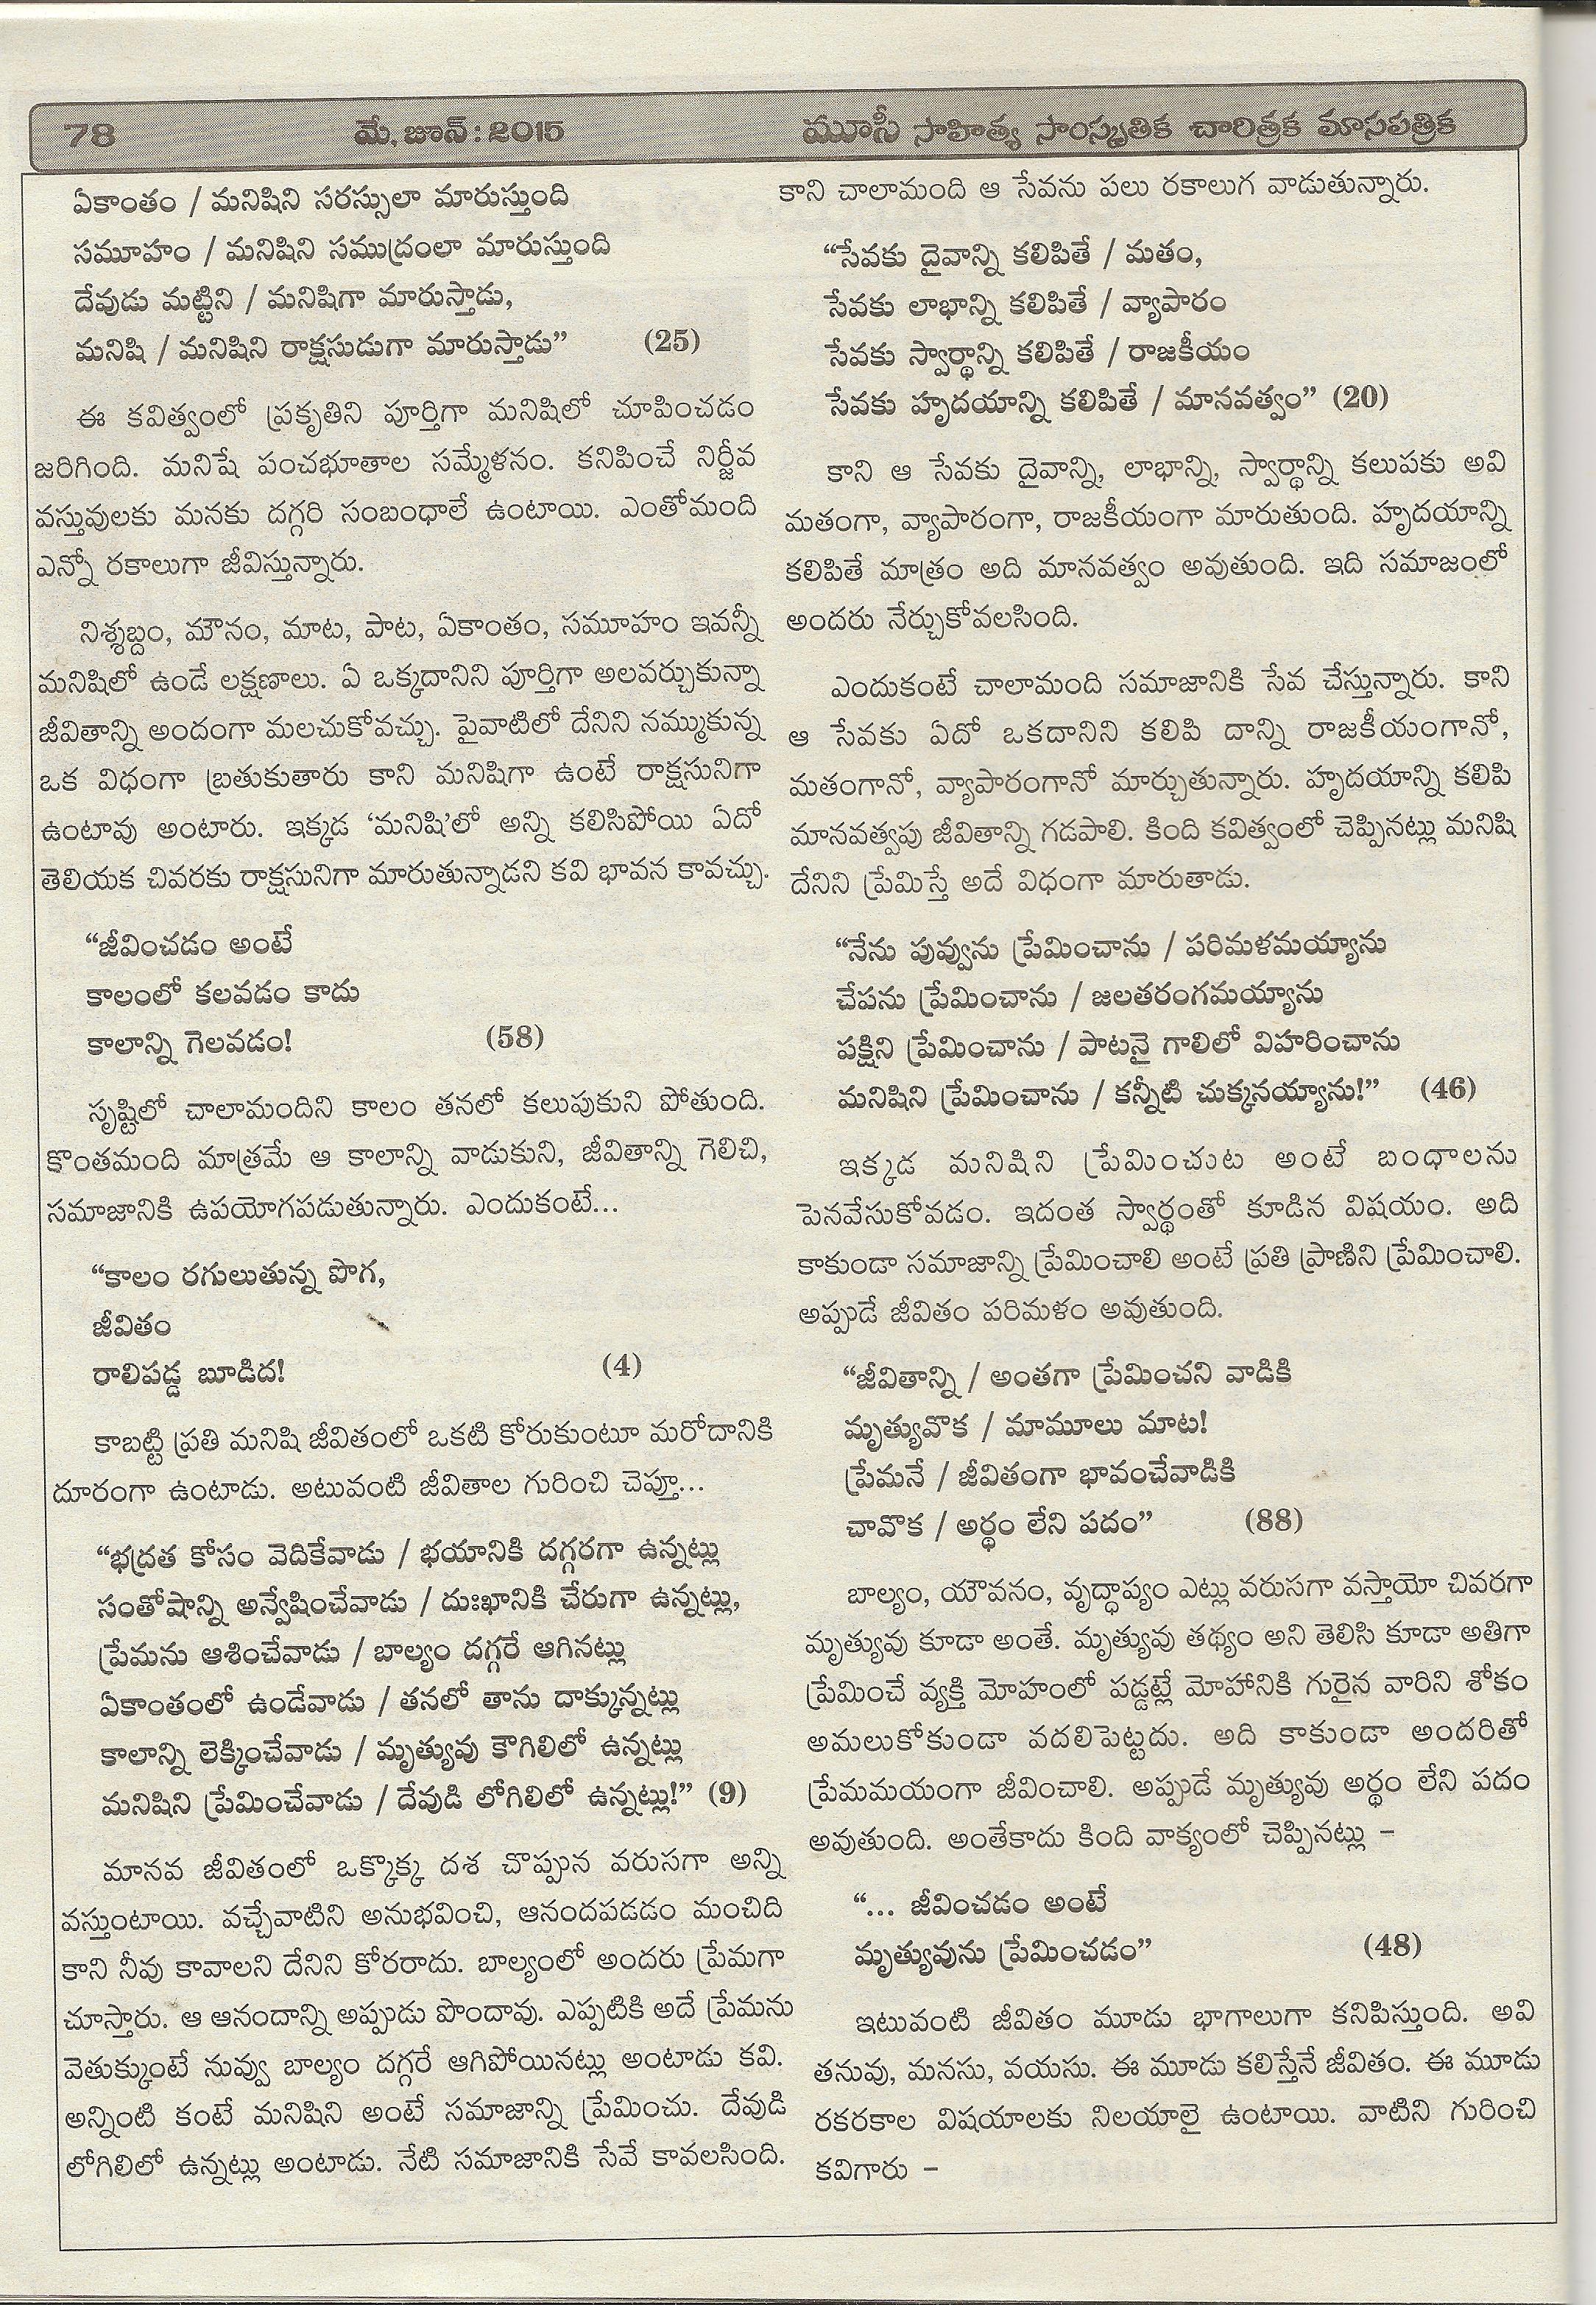 78 మే, జూన్ : 2015 మూసీ సాహిత్య సాంస్కృతిక చారిత్రక మాసపత్రిక
ఏకాంతం / మనిషిని సరస్సులా మారుస్తుంది
సమూహం / మనిషిని సముద్రంలా మారుస్తుంది
దేవుడు మట్టిని / మనిషిగా మారుస్తాడు,
మనిషి / మనిషిని రాక్షసుడుగా మారుస్తాడు” (25)
ఈ కవిత్వంలో ప్రకృతిని పూర్తిగా మనిషిలో చూపించడం
జరిగింది. మనిషే పంచభూతాల సమ్మేళనం. కనిపించే నిర్జీవ
వస్తువులకు మనకు దగ్గరి సంబంధాలే ఉంటాయి. ఎంతోమంది
ఎన్నో రకాలుగా జీవిస్తున్నారు.
నిశ్శబ్దం, మౌనం, మాట, పాట, ఏకాంతం, సమూహం ఇవన్నీ
మనిషిలో ఉండే లక్షణాలు. ఏ ఒక్కదానిని పూర్తిగా అలవర్చుకున్నా
జీవితాన్ని అందంగా మలచుకోవచ్చు. పైవాటిలో దేనిని నమ్ముకున్న
ఒక విధంగా బ్రతుకుతారు కాని మనిషిగా ఉంటే రాక్షసునిగా
ఉంటావు అంటారు. ఇక్కడ ‘మనిషి’లో అన్ని కలిసిపోయి ఏదో
తెలియక చివరకు రాక్షసునిగా మారుతున్నాడని కవి భావన కావచ్చు.
“జీవించడం అంటే
కాలంలో కలవడం కాదు
కాలాన్ని గెలవడం! (58)
సృష్టిలో చాలామందిని కాలం తనలో కలుపుకుని పోతుంది.
కొంతమంది మాత్రమే ఆ కాలాన్ని వాడుకుని, జీవితాన్ని గెలిచి,
సమాజానికి ఉపయోగపడుతున్నారు. ఎందుకంటే...
“కాలం రగులుతున్న పొగ,
జీవితం
రాలిపడ్డ బూడిద! (4)
కాబట్టి ప్రతి మనిషి జీవితంలో ఒకటి కోరుకుంటూ మరోదానికి
దూరంగా ఉంటాడు. అటువంటి జీవితాల గురించి చెప్తూ...
“భద్రత కోసం వెదికేవాడు / భయానికి దగ్గరగా ఉన్నట్లు
సంతోషాన్ని అన్వేషించేవాడు / దుఃఖానికి చేరుగా ఉన్నట్లు,
ప్రేమను ఆశించేవాడు / బాల్యం దగ్గరే ఆగినట్లు
ఏకాంతంలో ఉండేవాడు / తనలో తాను దాక్కున్నట్లు
కాలాన్ని లెక్కించేవాడు / మృత్యువు కౌగిలిలో ఉన్నట్లు
మనిషిని ప్రేమించేవాడు / దేవుడి లోగిలిలో ఉన్నట్లు!” (9)
మానవ జీవితంలో ఒక్కొక్క దశ చొప్పున వరుసగా అన్ని
వస్తుంటాయి. వచ్చేవాటిని అనుభవించి, ఆనందపడడం మంచిది
కాని నీవు కావాలని దేనిని కోరరాదు. బాల్యంలో అందరు ప్రేమగా
చూస్తారు. ఆ ఆనందాన్ని అప్పుడు పొందావు. ఎప్పటికి అదే ప్రేమను
వెతుక్కుంటే నువ్వు బాల్యం దగ్గరే ఆగిపోయినట్లు అంటాడు కవి.
అన్నింటి కంటే మనిషిని అంటే సమాజాన్ని ప్రేమించు. దేవుడి
లోగిలిలో ఉన్నట్లు అంటాడు. నేటి సమాజానికి సేవే కావలసింది.
కాని చాలామంది ఆ సేవను పలు రకాలుగ వాడుతున్నారు.
“సేవకు దైవాన్ని కలిపితే / మతం,
సేవకు లాభాన్ని కలిపితే / వ్యాపారం
సేవకు స్వార్థాన్ని కలిపితే / రాజకీయం
సేవకు హృదయాన్ని కలిపితే / మానవత్వం” (20)
కాని ఆ సేవకు దైవాన్ని, లాభాన్ని, స్వార్థాన్ని కలుపకు అవి
మతంగా, వ్యాపారంగా, రాజకీయంగా మారుతుంది. హృదయాన్ని
కలిపితే మాత్రం అది మానవత్వం అవుతుంది. ఇది సమాజంలో
అందరు నేర్చుకోవలసింది.
ఎందుకంటే చాలామంది సమాజానికి సేవ చేస్తున్నారు. కాని
ఆ సేవకు ఏదో ఒకదానిని కలిపి దాన్ని రాజకీయంగానో,
మతంగానో, వ్యాపారంగానో మార్చుతున్నారు. హృదయాన్ని కలిపి
మానవత్వపు జీవితాన్ని గడపాలి. కింది కవిత్వంలో చెప్పినట్లు మనిషి
దేనిని ప్రేమిస్తే అదే విధంగా మారుతాడు.
“నేను పువ్వును ప్రేమించాను / పరిమళమయ్యాను
చేపను ప్రేమించాను / జలతరంగమయ్యాను
పక్షిని ప్రేమించాను / పాటనై గాలిలో విహరించాను
మనిషిని ప్రేమించాను / కన్నీటి చుక్కనయ్యాను!” (46)
ఇక్కడ మనిషిని ప్రేమించుట అంటే బంధాలను
పెనవేసుకోవడం. ఇదంత స్వార్థంతో కూడిన విషయం. అది
కాకుండా సమాజాన్ని ప్రేమించాలి అంటే ప్రతి ప్రాణిని ప్రేమించాలి.
అప్పుడే జీవితం పరిమళం అవుతుంది.
“జీవితాన్ని / అంతగా ప్రేమించని వాడికి
మృత్యువొక / మామూలు మాట!
ప్రేమనే / జీవితంగా భావంచేవాడికి
చావొక / అర్థం లేని పదం” (88)
బాల్యం, యౌవనం, వృద్ధాప్యం ఎట్లు వరుసగా వస్తాయో చివరగా
మృత్యువు కూడా అంతే. మృత్యువు తథ్యం అని తెలిసి కూడా అతిగా
ప్రేమించే వ్యక్తి మోహంలో పడ్డట్లే మోహానికి గురైన వారిని శోకం
అమలుకోకుండా వదలిపెట్టదు. అది కాకుండా అందరితో
ప్రేమమయంగా జీవించాలి. అప్పుడే మృత్యువు అర్థం లేని పదం
అవుతుంది. అంతేకాదు కింది వాక్యంలో చెప్పినట్లు –
“... జీవించడం అంటే
మృత్యువును ప్రేమించడం” (48)
ఇటువంటి జీవితం మూడు భాగాలుగా కనిపిస్తుంది. అవి
తనువు, మనసు, వయసు. ఈ మూడు కలిస్తేనే జీవితం. ఈ మూడు
రకరకాల విషయాలకు నిలయాలై ఉంటాయి. వాటిని గురించి
కవిగారు –